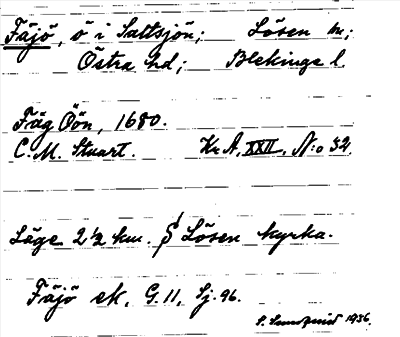 Fäjö, ö i Saltsjön; Lösen sn;
Östra hd; Blekinge l.
Fäg Öön, 1680.
C. M. Stuart. Kr. A. XXII, N:o 52.
Läge 2 ½ km. S Lösen kyrka.
Fäjö ek. G. 11, Sj. 96.
S. Sundquist 1936.